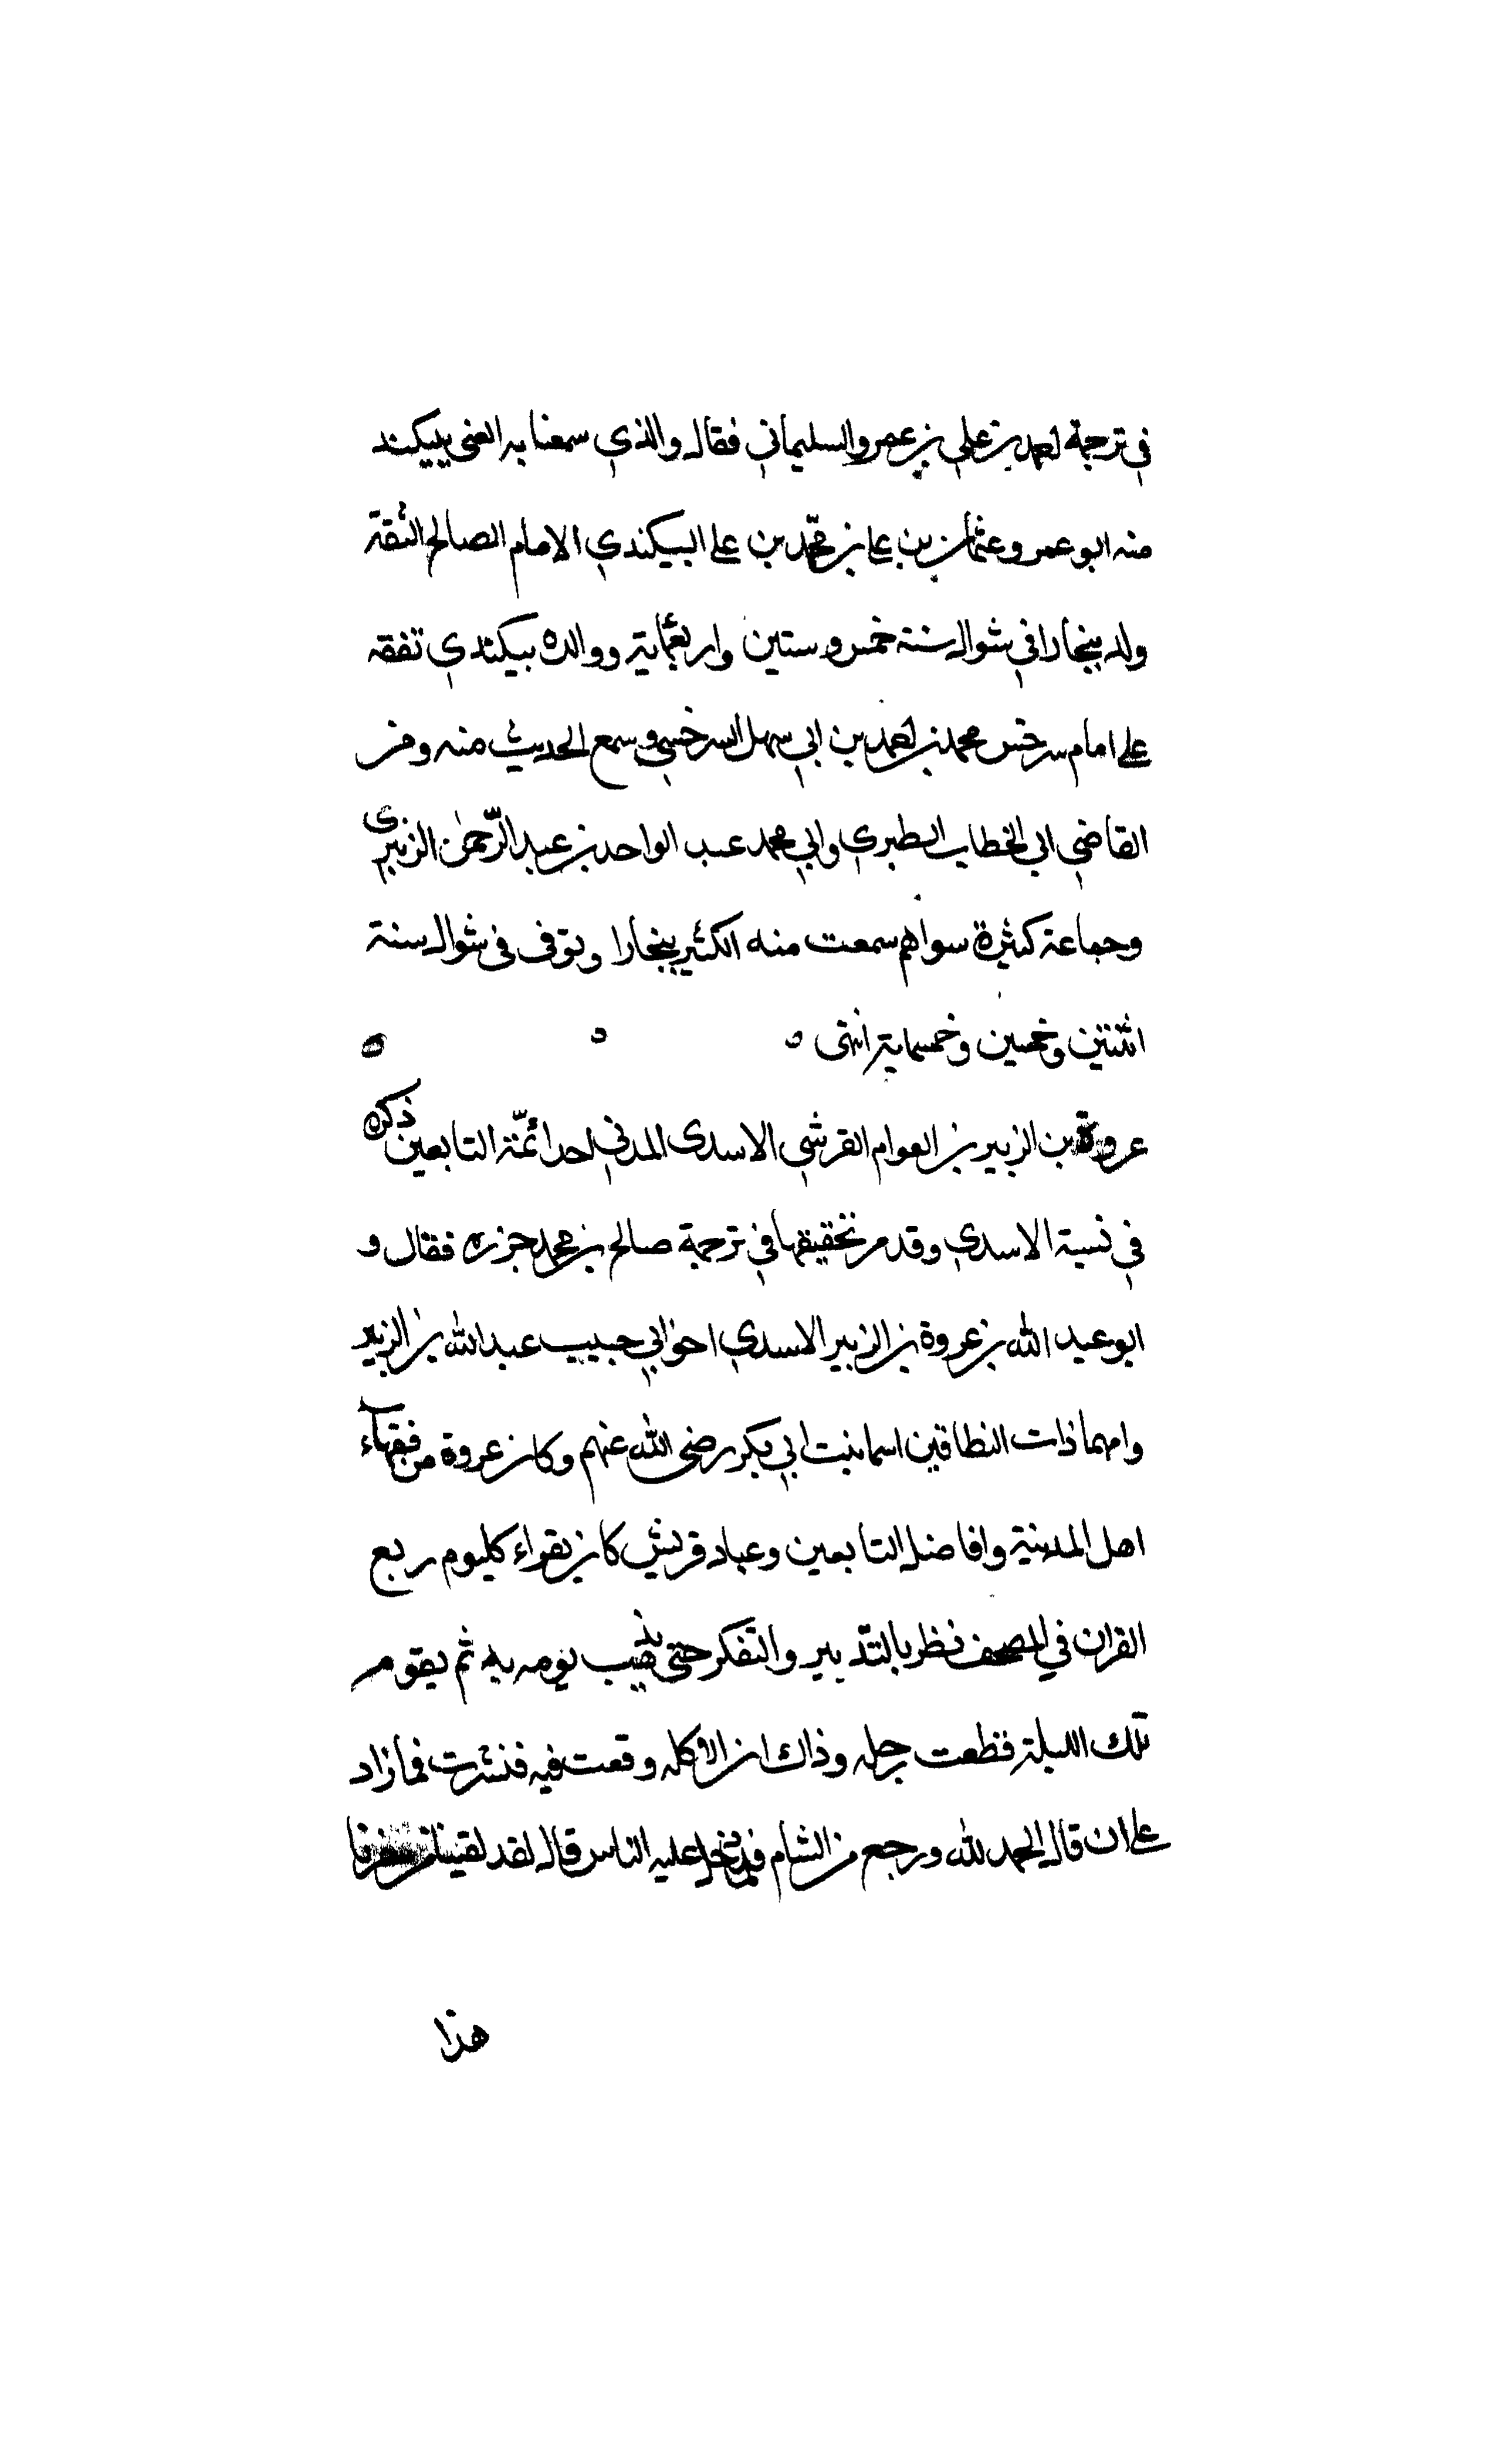 في ترجمة احمد بن علي بن عمرو السليماني فقال والذي سمعنا به اعني ببيكند
منه ابو عمرو عثمان بن علي بن محمّد بن علي البيكندي الامام الصالح الثقة
ولد ببخارا في شوال سنة خمس وستين واربعماية ووالده بيكندي تفقه
على امام سرخس محمد بن احمد بن ابي سهل السرخسي وسمع الحديث منه ومن
القاضي ابي الخطاب الطبري وابي محمد عبد الواحد بن عبد الرّحمن الزبيري
وجماعة كثيرة سواهم سمعت منه الكثير ببخارا وتوفى فى شوال سنة
اثنتين وخمسين وخمسماية انتهى
عروة بن الزبير بن العوام القرشي الاسدى المدني احد ائمّة التابعين ذكره
في نسبة الاسدي وقد مر تحقيقها في ترجمة صالح بن محمد جزره فقال و
ابو عبد الله بن عروة بن الزبير الاسدي اخو ابي حبيب عبد الله بن الزبير
وامهما ذات النطاقين اسما بنت ابي بكر رضى الله عنهم وكان عروة من فقهاء
اهل المدينة وافاضل التابعين وعباد قريش كان يقراء كل يوم ربع
القران في المصحف نظر بالتّدبير والتفكر حتى يومه به ثم يقوم
تلك الليلة فقطعت رجله وذاك ان الاكله وقعت فيه فنشرت فما زاد
على ان قال الحمد لله ورجع من الشام فدخل عليه الناس قال لقد لقينا من سفرنا
هذا